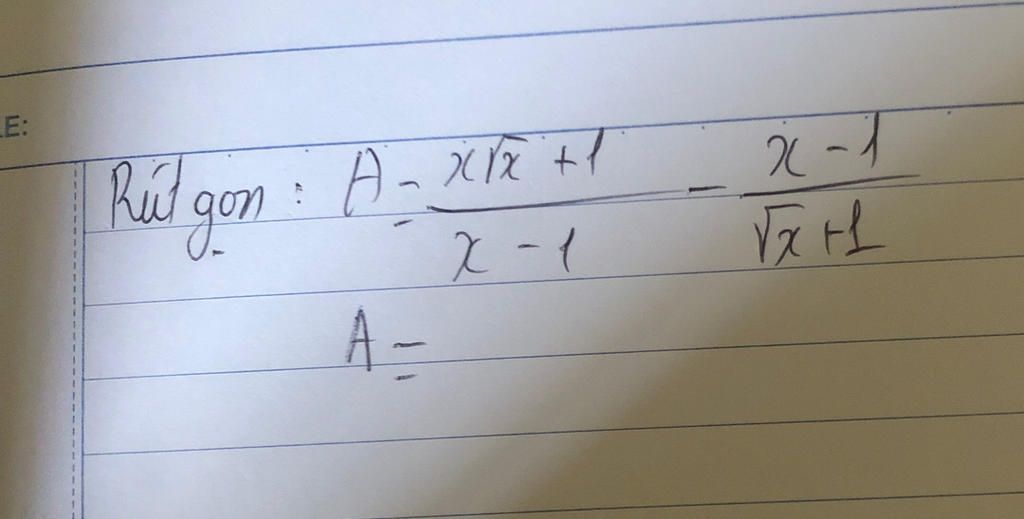 LE:
Rút gọn : A = x√x + 1 / x - 1 - x - 1 / √x + 1
A =